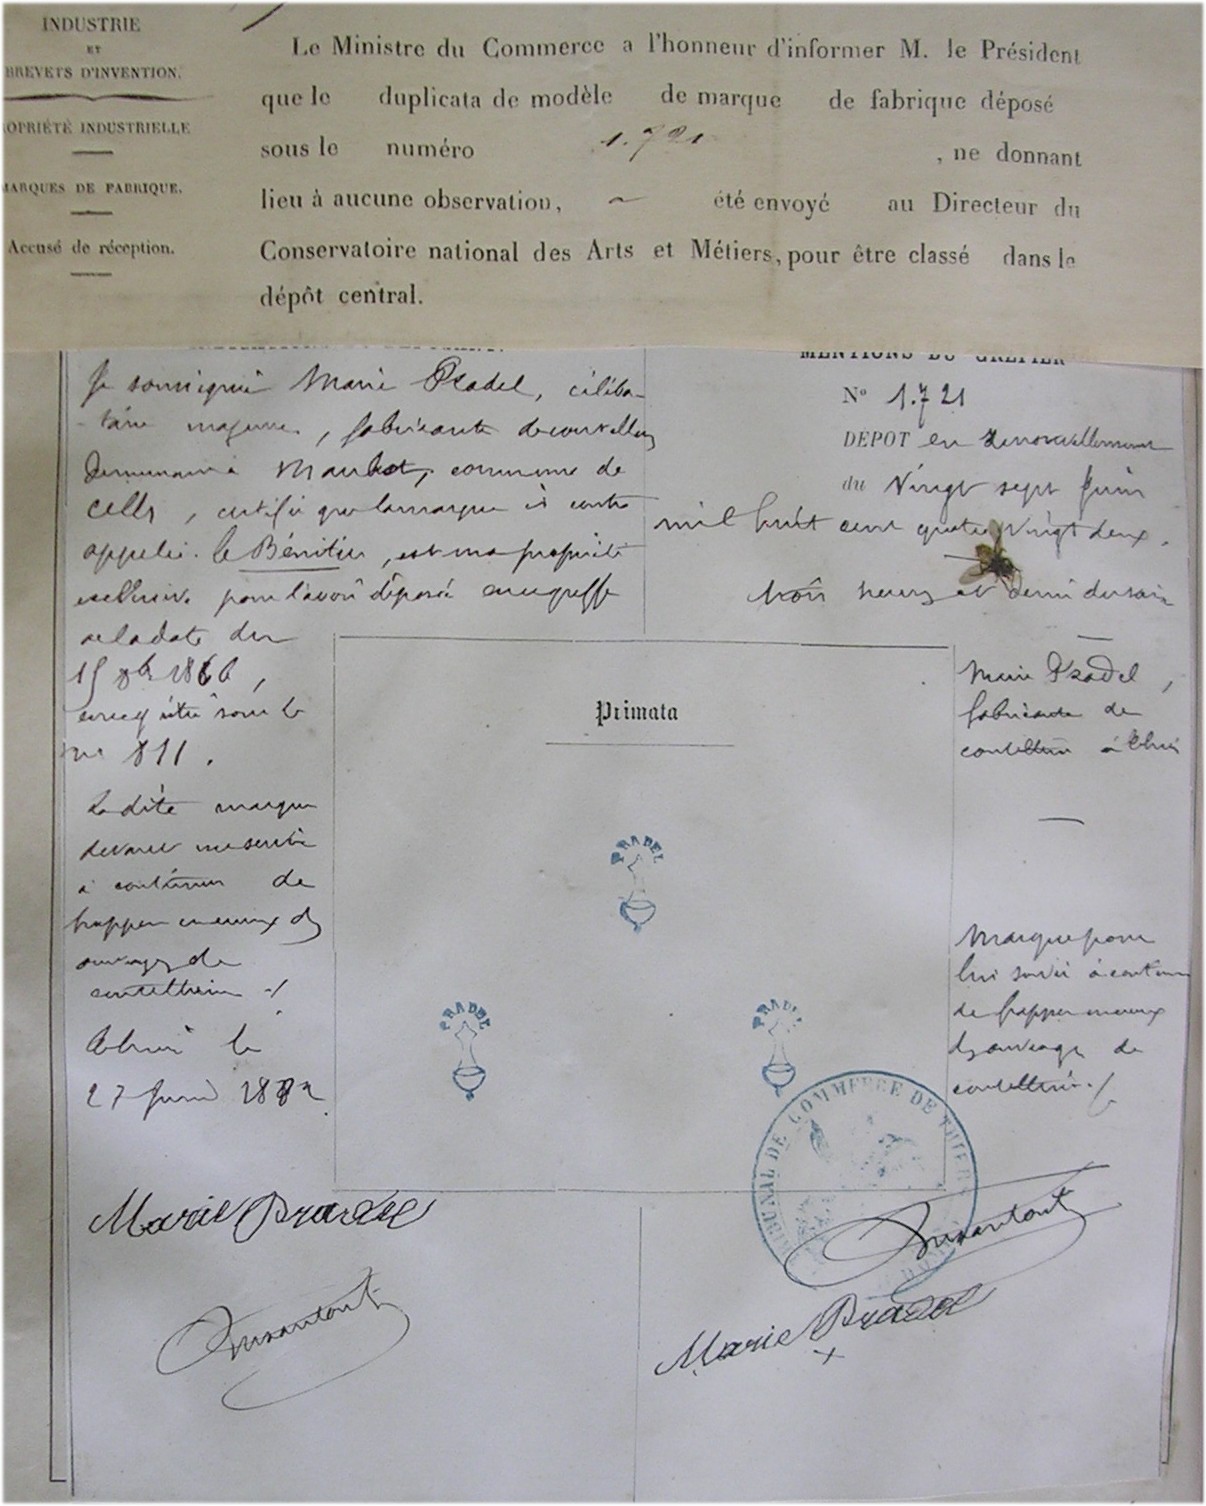 INDUSTRIE
ET
BREVETS D'INVENTION.
OPRIÉTÉ INDUSTRIELLE
MARQUES DE FABRIQUE.
Accusé de réception.
Le Ministre du Commerce a l'honneur d'informer M. le Président
que le duplicata de modèle de marque de fabrique déposé
sous le numéro 1.721 , ne donnant
lieu à aucune observation, été envoyé au Directeur du
Conservatoire national des Arts et Métiers, pour être classé dans le
dépôt central.
Je soussigné Marie Pradel, céliba-
taire majeure, fabricante de coutellerie
demeurant à commune de
Celles, certifie que la marque ci contre
appelée le Bénitier, est ma propriété
exclusive pour l'avoir déposée au greffe
à la date du
15 8bre 1860,
enregistré sous le
no 811.
La dite marque
devant me servir
à continuer de
frapper mieux des
ouvrages de
coutellerie
Thiers le
27 Juin 1882
Marie Pradel
MENTIONS DU GREFFIER
No 1.721
DÉPOT en renouvellement
du Vingt sept Juin
mil huit cent quatre Vingt deux.
trois heures et demi du soir
Marie Pradel,
fabricante de
coutellerie à Thiers
Marque pour
lui servir à continuer
de frapper mieux
des ouvrages de
coutellerie
Primata
PRADEL
PRADEL
PRADEL
TRIBUNAL DE COMMERCE DE THIERS
Marie Pradel